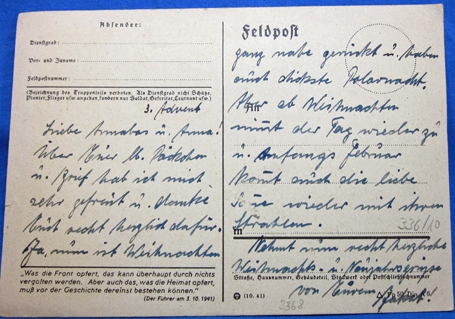 Absender:
Dienstgrad:
Vor- und Zuname:
Feldpostnummer:
(Bezeichnung des Truppenteils verboten. Als Dienstgrad nicht Schütze,
Pionier, Flieger usw. angeben, sondern nur Soldat, Gefreiter, Leutnant usw.)
3. Advent
Liebe Annabas u. Anna!
Über Euer lb. Päckchen
u. Brief hab ich mich
sehr gefreut u. danke
Euch recht herzlich dafür.
Ja, nun ist Weihnachten
„Was die Front opfert, das kann überhaupt durch nichts
vergolten werden. Aber auch das, was die Heimat opfert,
muß vor der Geschichte dereinst bestehen können."
(Der Führer am 3. 10. 1941)
Feldpost
ganz nahe gerückt u. haben
auch dickste Polarnacht.
An
ab Weihnachten
nimmt der Tag wieder zu
u. Anfangs Februar
kommt auch die liebe
Sonne wieder mit ihren
Strahlen.
336/10
in
Nehmt nun recht herzliche
Straße, Hausnummer, Gebäudeteil, Stockwerk oder Postschließfachnummer
Weihnachts- u. Neujahrsgrüße
von Eurem
(10. 41)
2368